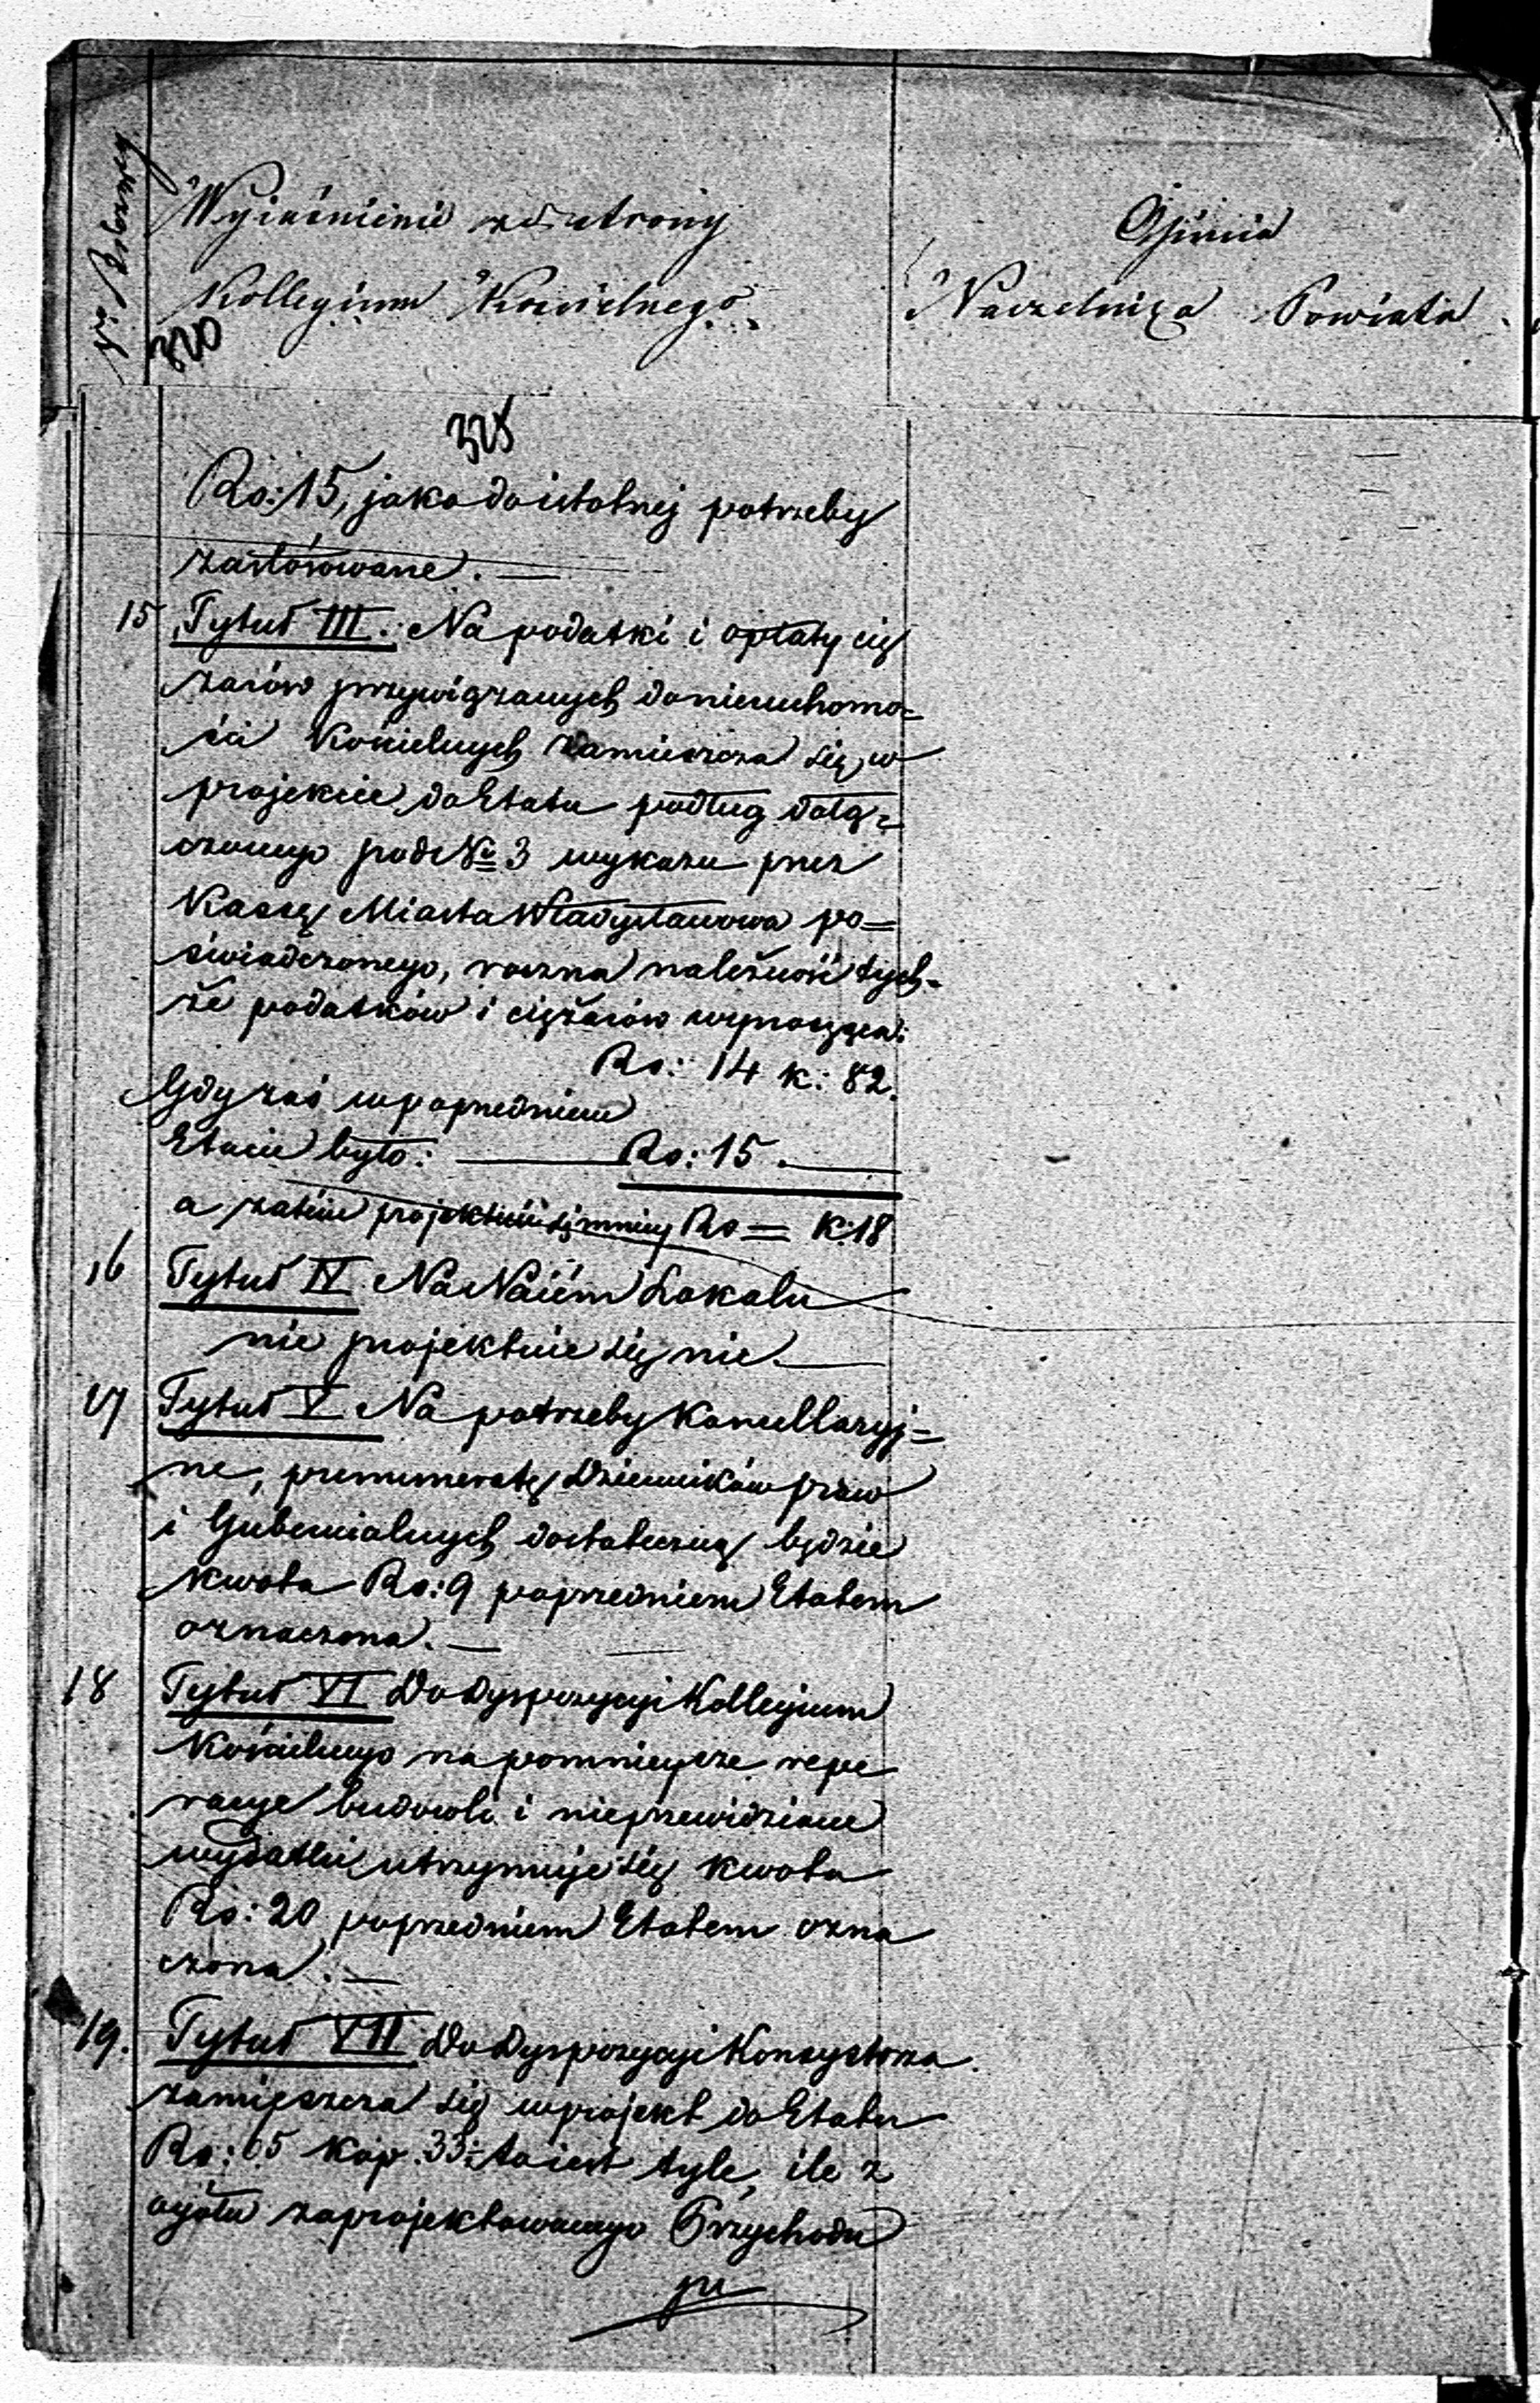 Nr Bieżący
Wyjaśnienie ze strony
Kollegium Kościelnego.
Opinia
Naczelnika Powiatu.
320
325
Rs: 15, jako do istotnej potrzeby
zastósowane. —
15 Tytuł III. Na podatki i opłaty cię
żarów przywiązanych do nieruchomo=
ści Kościelnych zamieszcza się, w
projekcie do Etatu podług dołą=
czonego pod № 3 wykazu przez
Kassę Miasta Władysławowa po=
świadczonego, roczna należność tych-
że podatków i ciężarów wynosząca:
Rs: 14 k: 82.
Gdy zaś w poprzedniem
Etacie było: — Rs: 15. —
a zatém projektuie się mniey Rs = k: 18
16 Tytuł IV Na Naiém Lokalu
nie projektuie się nic. —
17 Tytuł V Na potrzeby Kancellaryj=
ne, prenumeratę Dzienników praw
i Gubernialnych dostateczną będzie
kwota Rs: 9 poprzedniem Etatem
oznaczona. —
18 Tytuł VI Do Dyspozycyi Kollegium
Kościelnego na pomnieysze repe
racye budowli i nieprzewidziane
wydatki utrzymuje się kwota
Rs: 20 poprzedniem Etatem ozna
czona. —
19. Tytuł VII Do Dyspozycyi Konsystorza
zamieszcza się w projekt do Etatu
Rs: 65 kop. 33 to iest tyle, ile z
ogółu zaprojektowanego Przychodu